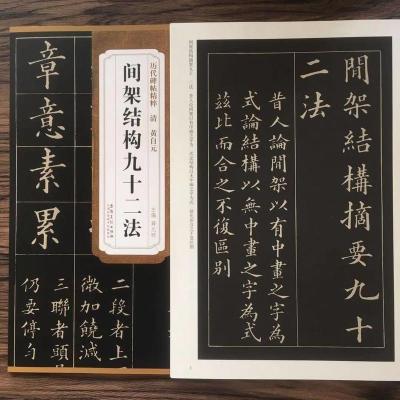 章意素累
二段者上
微加饒減
三聯者頭
仍要停勻
历代碑帖精粹 清 黄自元
间架结构九十二法
間架結構摘要九十
二法
昔人論間架以有中畫之字為
式論結構以無中畫之字為式
茲比而合之不復區別